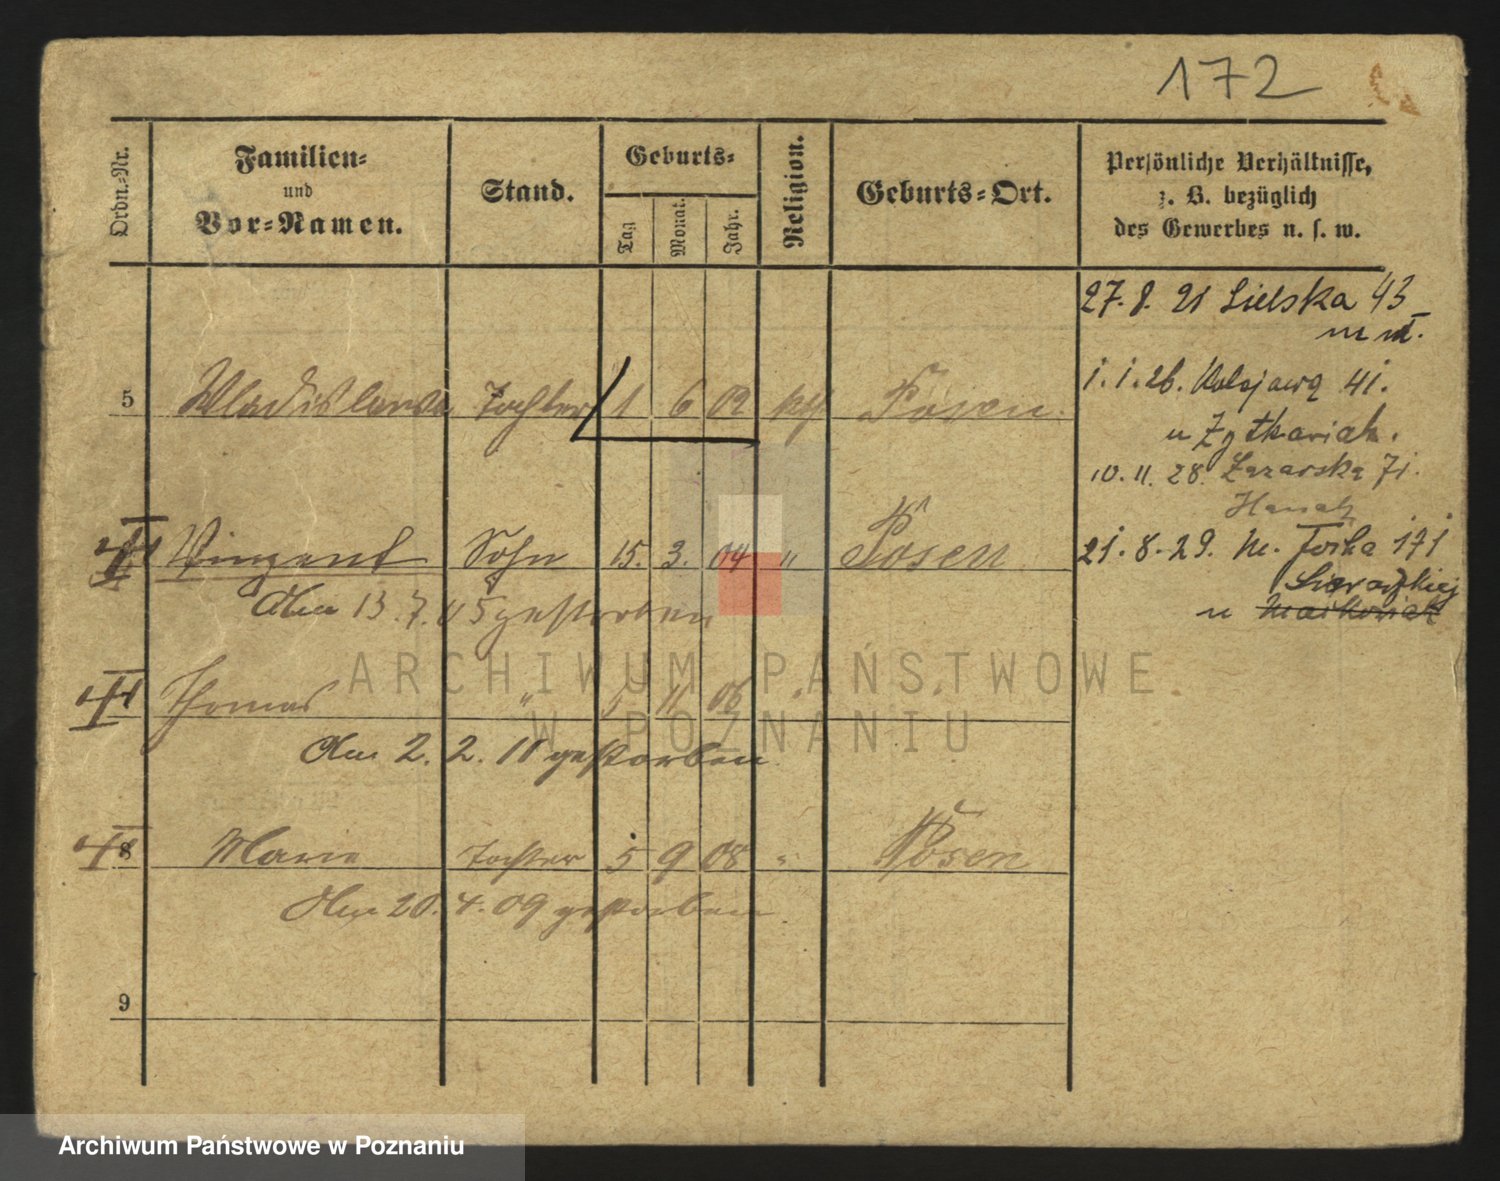 172
Ordn.-Nr.
Familien-
und
Vor-Namen.
Stand.
Geburts-
Tag
Monat.
Jahr.
Religion.
Geburts-Ort.
Persönliche Verhältnisse,
z. B. bezüglich
des Gewerbes u. s. w.
27. 8. 21 Sielska 43
5 Wladislawa Tochter 1 6 02 kth Posen.
1. 1. 26. 41.
u
10. 11. 28. Łazarska 71.
Vinzent Sohn 15. 3. 04 " Posen
Am 13. 7. 05 gestorben
21. 8. 29. M. Focha 171
u
Thomas " 5 11 06 "
Am 2. 2. 11 gestorben.
8 Marie Tochter 5 9 08 " Posen
Am 20. 4. 09 gestorben.
9
ARCHIWUM PAŃSTWOWE
W POZNANIU
Archiwum Państwowe w Poznaniu